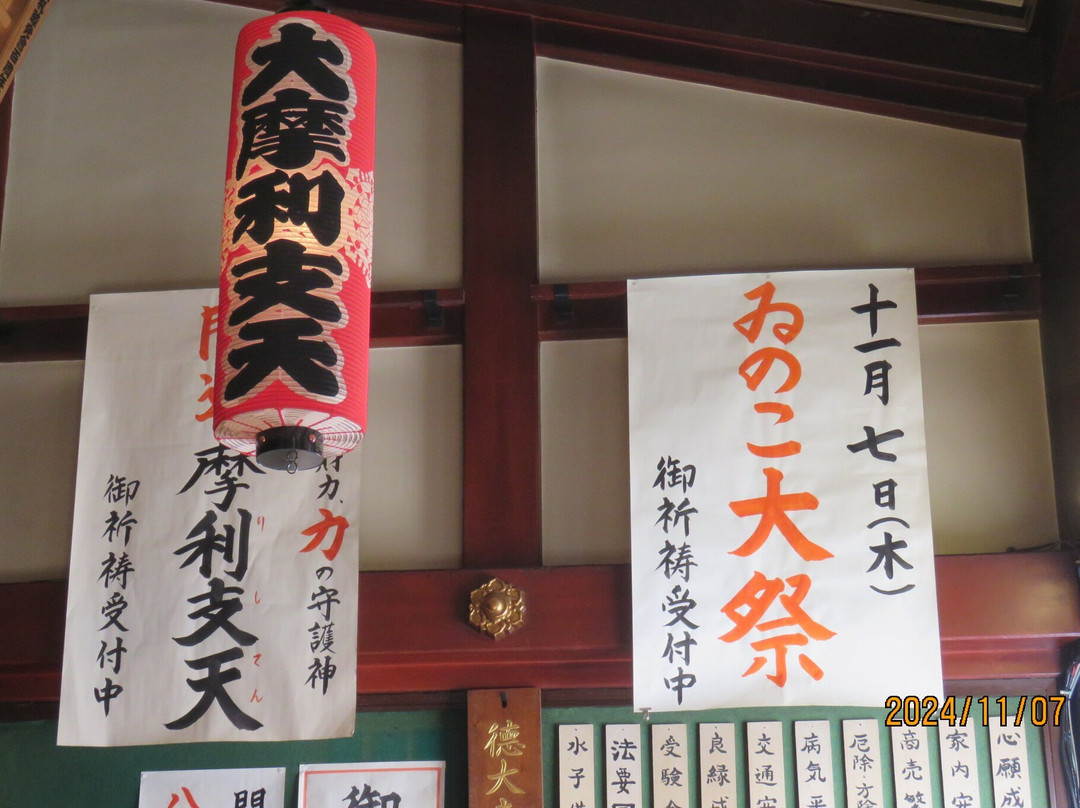 大摩利支天
十一月七日(木)
ゐのこ大祭
御祈祷受付中
力の守護神
摩利支天
りしてん
御祈祷受付中
徳大
心願成
家内安
商売繁
厄除・方除
病気平
交通安
良縁成
受験合
法要
水子供
御
開
八
2024/11/07